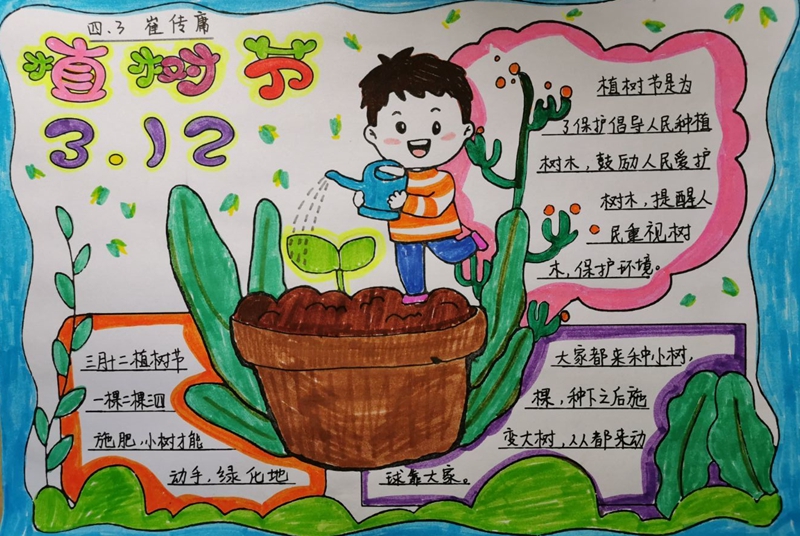 四.3 崔传
植树节
3.12
植树节是为
了保护倡导人民种植
树木，鼓励人民爱护
树木，提醒人
民重视树
木，保护环境。
三月十二植树节
一棵二棵三四
施肥，小树才能
动手，绿化地
大家都来种小树，
棵，种下之后施
变大树，人人都来动
球靠大家。